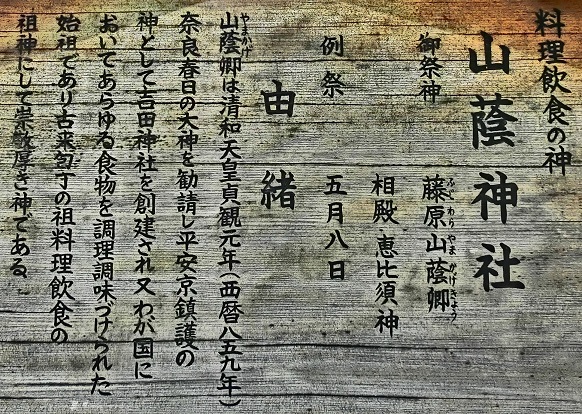 料理飲食の神
山蔭神社
御祭神 藤原山蔭卿
ふじわらやまかげきょう
相殿 恵比須神
例祭 五月八日
由緒
山蔭卿は清和天皇貞観元年(西暦八五九年)
やまかげ
奈良春日の大神を勧請し平安京鎮護の
神として吉田神社を創建され又わが国に
おいてあらゆる食物を調理調味づけられた
始祖であり古来包丁の祖料理飲食の
祖神にして崇敬厚き神である。